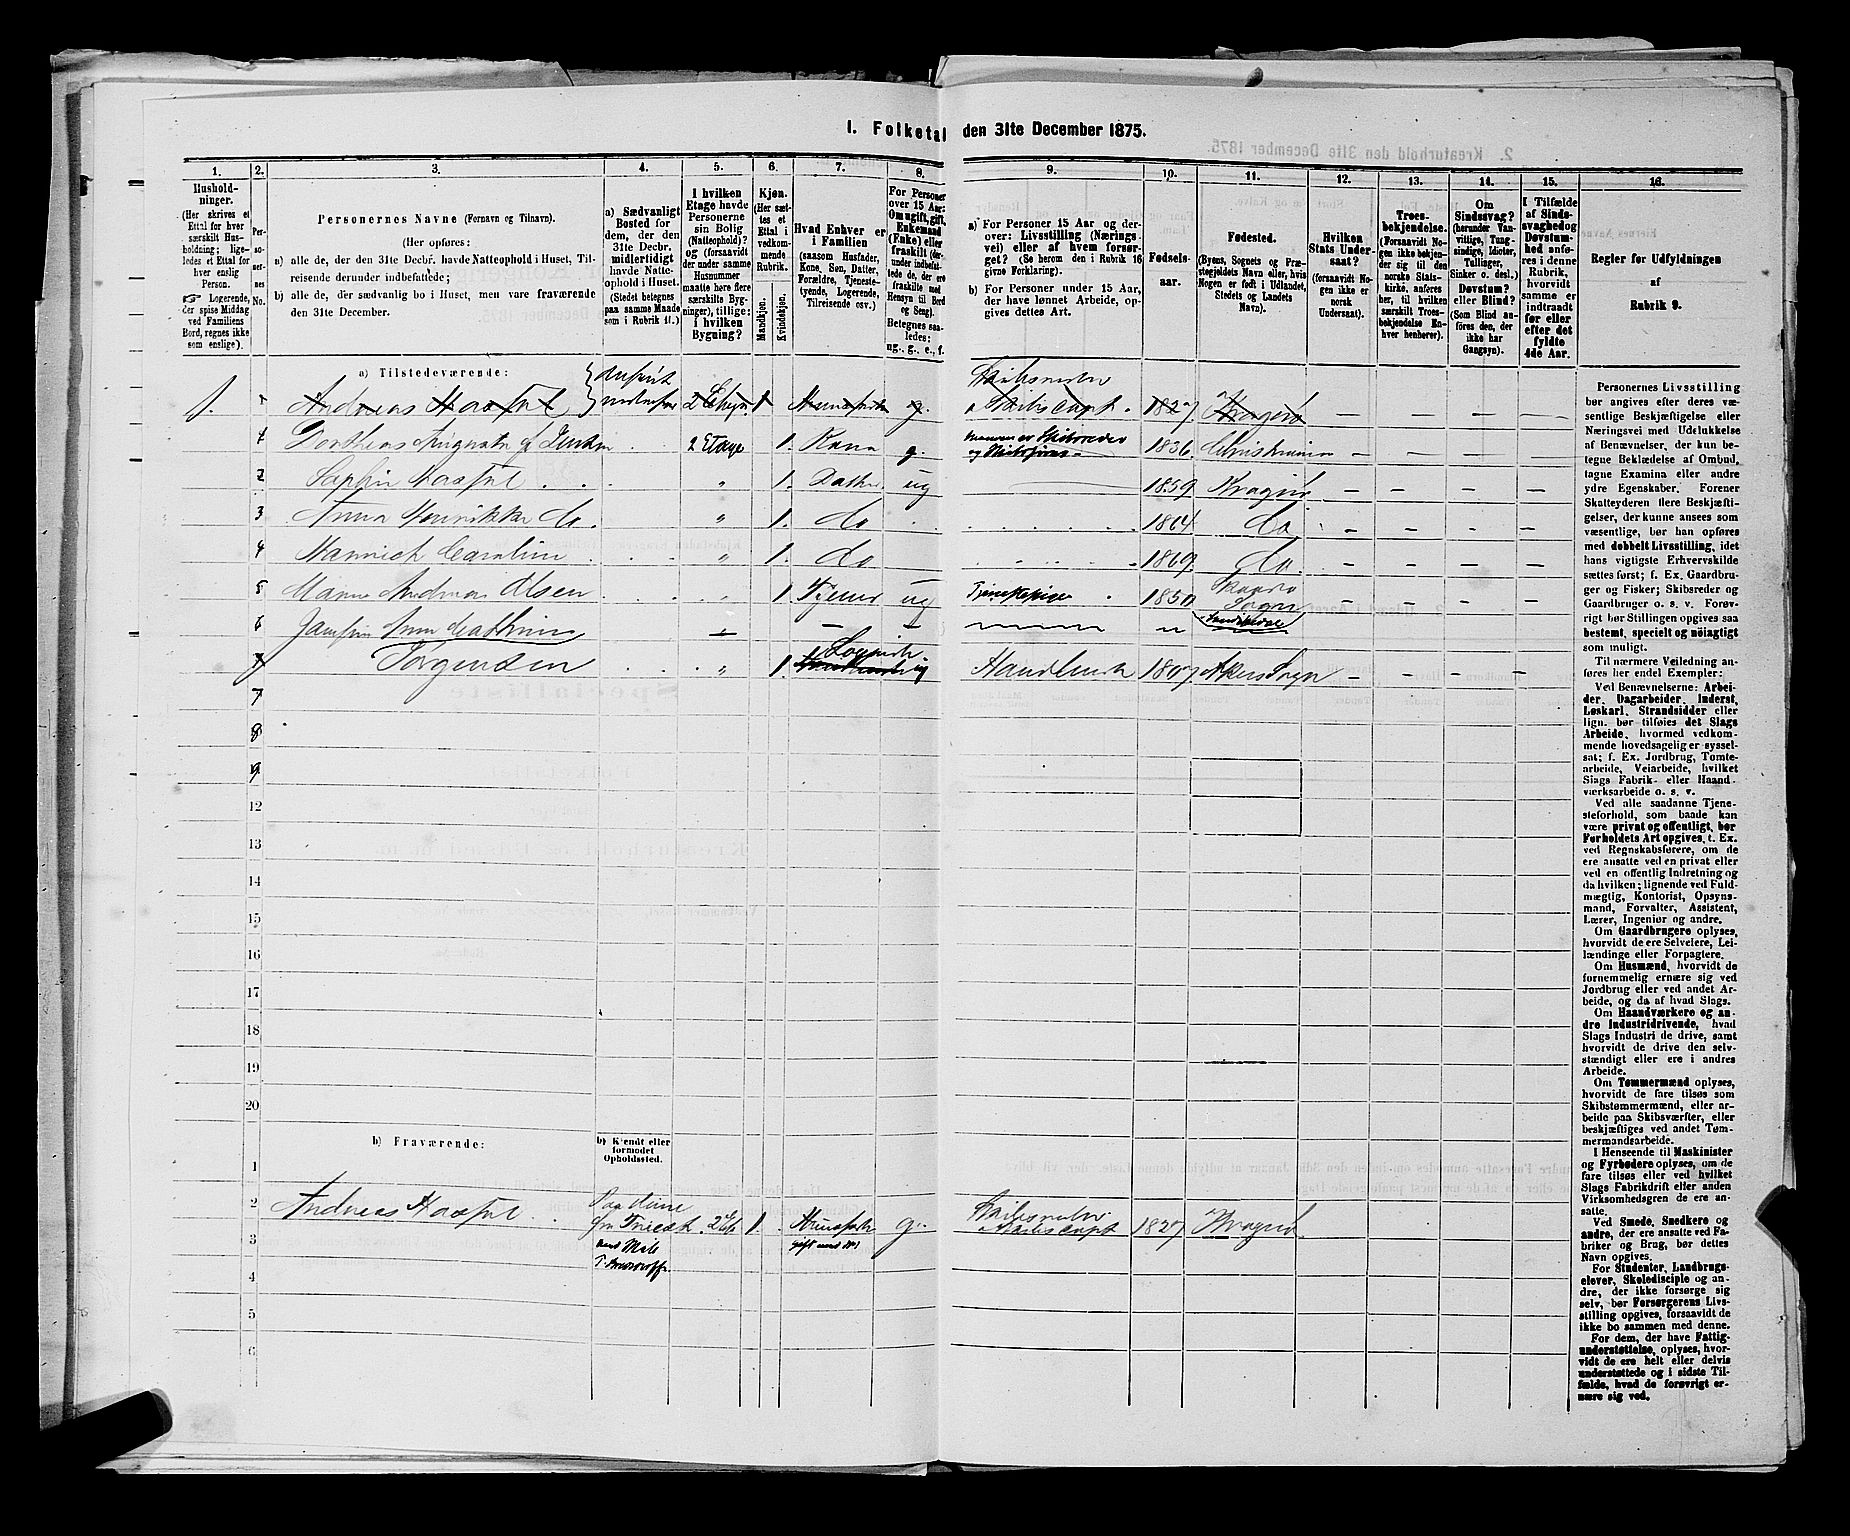 1. Folketal den 31te December 1875.
1.
2.
3.
4.
5.
6.
7.
8.
9.
10.
11.
12.
13.
14.
15.
16.
Hushold-
ninger.
(Her skrives et
Ettal for hver
særskilt Hus-
holdning; lige-
ledes et Ettal for
hver enslig
Person.
☞ Logerende,
der spise Middag
ved Familiens
Bord, regnes ikke
som enslige).
Per-
so-
ner-
nes
No.
Personernes Navne (Fornavn og Tilnavn).
(Her opføres:
a) alle de, der den 31te Decbr. havde Natteophold i Huset, Til-
reisende derunder indbefattede;
b) alle de, der sædvanlig bo i Huset, men vare fraværende
den 31te December.
a) Sædvanligt
Bosted for
dem, der den
31te Decbr.
midlertidigt
havde Natte-
ophold i Huset.
(Stedet betegnes
paa samme Maade
som i Rubrik 11.)
I hvilken
Etage havde
Personerne
sin Bolig
(Natteophold)?
og (forsaavidt
der under samme
Husnummer
maatte høre flere
særskilte Byg-
ninger), tillige:
i hvilken
Bygning?
Kjøn.
(Her sæt-
tes et
Ettal i
vedkom-
mende
Rubrik.
Mandkjøn.
Kvindekjøn.
Hvad Enhver er
i Familien
(saasom Husfader,
Kone, Søn, Datter,
Forældre, Tjeneste-
tyende, Logerende,
Tilreisende osv.)
For Personer
over 15 Aar:
Om ugift, gift,
Enkemand
(Enke) eller
fraskilt (der-
under indbefat-
tede de, der ere
fraskilte med
Hensyn til Bord
og Seng).
Betegnes saa-
ledes:
ug., g., e., f.
a) For Personer 15 Aar og der-
over: Livsstilling (Nærings-
vei) eller af hvem forsør-
get? (Se herom den i Rubrik 16
givne Forklaring).
b) For Personer under 15 Aar,
der have lønnet Arbeide, op-
gives dettes Art.
Fødsels-
aar.
Fødested.
(Byens, Sognets og Præ-
stegjeldets Navn eller, hvis
Nogen er født i Udlandet,
Stedets og Landets
Navn).
Hvilken
Stats Under-
saat?
(forsaavidt No-
gen ikke er
norsk
Undersaat).
Troes-
bekjendelse.
(Forsaavidt No-
gen ikke bekjen-
der sig til den
norske Stats-
kirke, anføres
her, til hvilken
særskilt Troes-
bekjendelse En-
hver henhører).
Om
Sindssvag?
(herunder Van-
vittige, Tung-
sindige, Idioter,
Tullinger,
Sinker o. desl.)
Døvstum?
eller Blind?
(Som Blind an-
føres den, der
ikke har
Gangsyn).
I Tilfælde
af Sinds-
svaghed og
Døvstum-
hed anfø-
res i denne
Rubrik,
hvorvidt
samme er
indtraadt
før eller
efter det
fyldte
4de Aar.
Regler for Udfyldningen
af
Rubrik 9.
a) Tilstedeværende:
1. Andreas Haasfut 2 Etage 1 g. Skibsreder & Skibscapt. 1827 Kragerø
1 2 Etage 1. Kone g. Manden er Skibsreder og Skibsfører 1836 Christiania – – – –
2 " 1. Datter ug 1859 Kragerø – – – –
3 Anna Henrikke do. " 1. do 1864 do – – – –
4 Caroline " 1. do 1869 do. – – – –
5 Andrea Olsen " 1. Tjener ug Tjenestepige 1850 Skaadø Sogn – – – –
6
Jørgensen " 1. Logerende ug 1807 Akers Sogn – – – –
7
8
9
12
13
14
15
16
17
18
19
20
b) Fraværende:
b) Kjendt eller
formodet
Opholdssted.
1
2 Andreas Haasfut 2 Etg 1. g. Skibsreder & Skibscapt 1827 Kragerø
3
4
5
6
Personernes Livsstilling
bør angives efter deres væ-
sentlige Beskjæftigelse eller
Næringsvei med Udelukkelse
af Benævnelser, der kun be-
tegne Beklædelse af Ombud,
tagne Examina eller andre
ydre Egenskaber. Forener
Skatteyderen flere Beskjæfti-
gelser, der kunne ansees som
væsentlige, bør han opføres
med dobbelt Livsstilling, idet
hans vigtigste Erhvervskilde
sættes først; f. Ex. Gaardbru-
ger og Fisker; Skibsreder og
Gaardbruger o. s. v. Forøv-
rigt bør Stillingen opgives saa
bestemt, specielt og nøiagtigt
som muligt.
Til nærmere Veiledning an-
føres her endel Exempler:
Ved Benævnelserne: Arbei-
der, Dagarbeider, Inderst,
Løskarl, Strandsidder eller
lign. bør tilføies det Slags
Arbeide, hvormed vedkom-
mende hovedsagelig er syssel-
sat; f. Ex. Jordbrug, Tomte-
arbeide, Veiarbeide, hvilket
Slags Fabrik- eller Haand-
værksarbeide o. s. v.
Ved alle saadanne Tjene-
steforhold, som baade kan
være privat og offentligt, bør
Forholdets Art opgives, t. Ex.
ved Regnskabsførere, om de
ere ansatte ved en privat eller
ved en offentlig Indretning og
da hvilken; lignende ved Fuld-
mægtig, Kontorist, Opsyns-
mand, Forvalter, Assistent,
Lærer, Ingeniør og andre.
Om Gaardbrugere oplyses,
hvorvidt de ere Selveiere, Lei-
lændinge eller Forpagtere.
Om Husmænd, hvorvidt de
fornemmelig ernære sig ved
Jordbrug eller ved andet Ar-
beide, og da af hvad Slags.
Om Haandværkere og an-
dre Industridrivende, hvad
Slags Industri de drive, samt
hvorvidt de drive den selv-
stændigt eller ere i andres
Arbeide.
Om Tømmermænd oplyses,
hvorvidt de fare tilsøs som
Skibstømmermænd, eller ar-
beide paa Skibsværfter, eller
beskjæftiges ved andet Tøm-
mermandsarbeide.
I Henseende til Maskinister
og Fyrbødere oplyses, om de
fare tilsøs eller ved hvilket
Slags Fabrikdrift eller anden
Virksomhedsgren de ere an-
satte.
Ved Smede, Snedkere og
andre, der ere ansatte ved Fa-
briker og Brug, bør dettes
Navn opgives.
For Studenter, Landbrugs-
elever, Skoledisciple og an-
dre, der ikke forsørge sig
selv, bør Forsørgerens Livs-
stilling opgives, forsaavidt de
ikke bo sammen med denne.
For dem, der have Fattig-
understøttelse, oplyses, hvor-
vidt de ere helt eller delvis
understøttede og i sidste Til-
fælde, hvad de forøvrigt er-
nære sig ved.